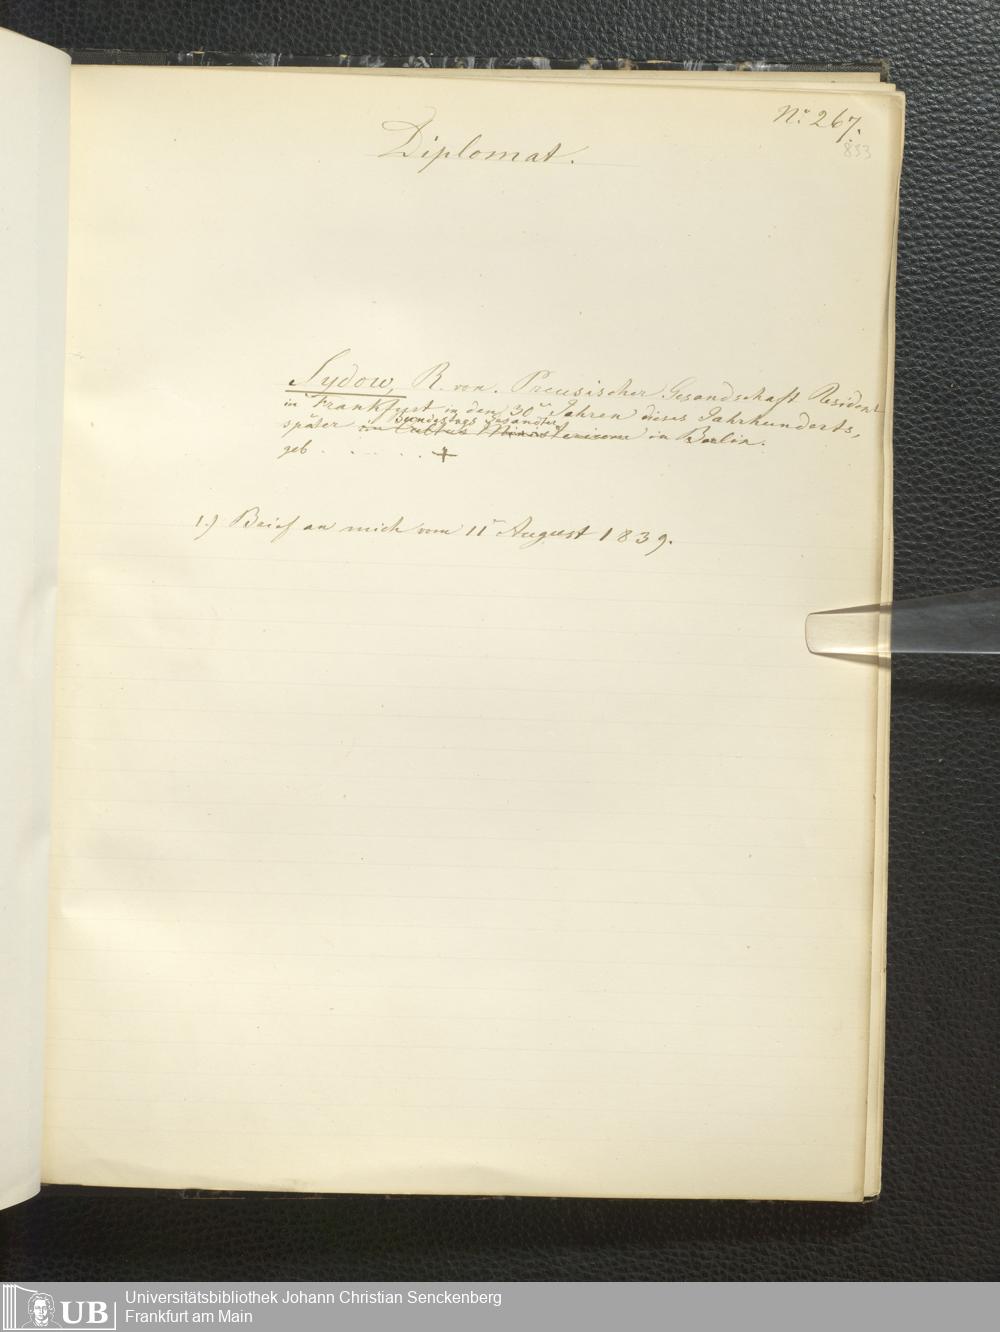 No. 267.
833
Diplomat.
Sydow, R. von. Preusischer Gesandschaft Resident
in Frankfurt in den 30r Jahren dieses Jahrhunderts,
Bundestags Gesandter
später im Cultus Ministerium in Berlin.
geb . . . . . . +
1.) Brief an mich vom 11r August 1839.
UB
Universitätsbibliothek Johann Christian Senckenberg
Frankfurt am Main